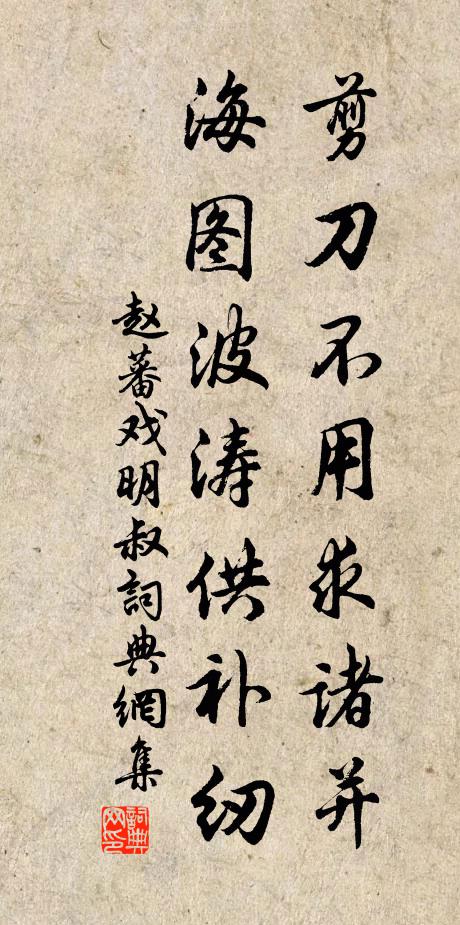 剪刀不用求诸并
海图波涛供补纫
赵蕃戏明叔詞典網集
詞典网印